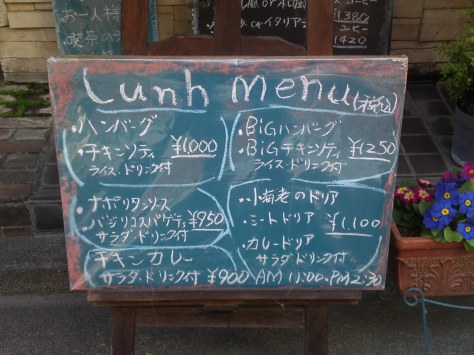 お一人様
喫茶の
¥1,380
コーヒー
¥1420
Lunh menu(税込)
・ハンバーグ
・チキンソティ ¥1,000
ライス・ドリンク付
・BiGハンバーグ
・BiGチキンソティ ¥1250
ライス・ドリンク付
・ナポリタンソース
・バジリコスパゲティ ¥950
サラダ・ドリンク付
・小海老のドリア
・ミートドリア ¥1,100
・カレードリア
サラダ・ドリンク付
チキンカレー
サラダ・ドリンク付 ¥900
AM 11:00.PM2:30